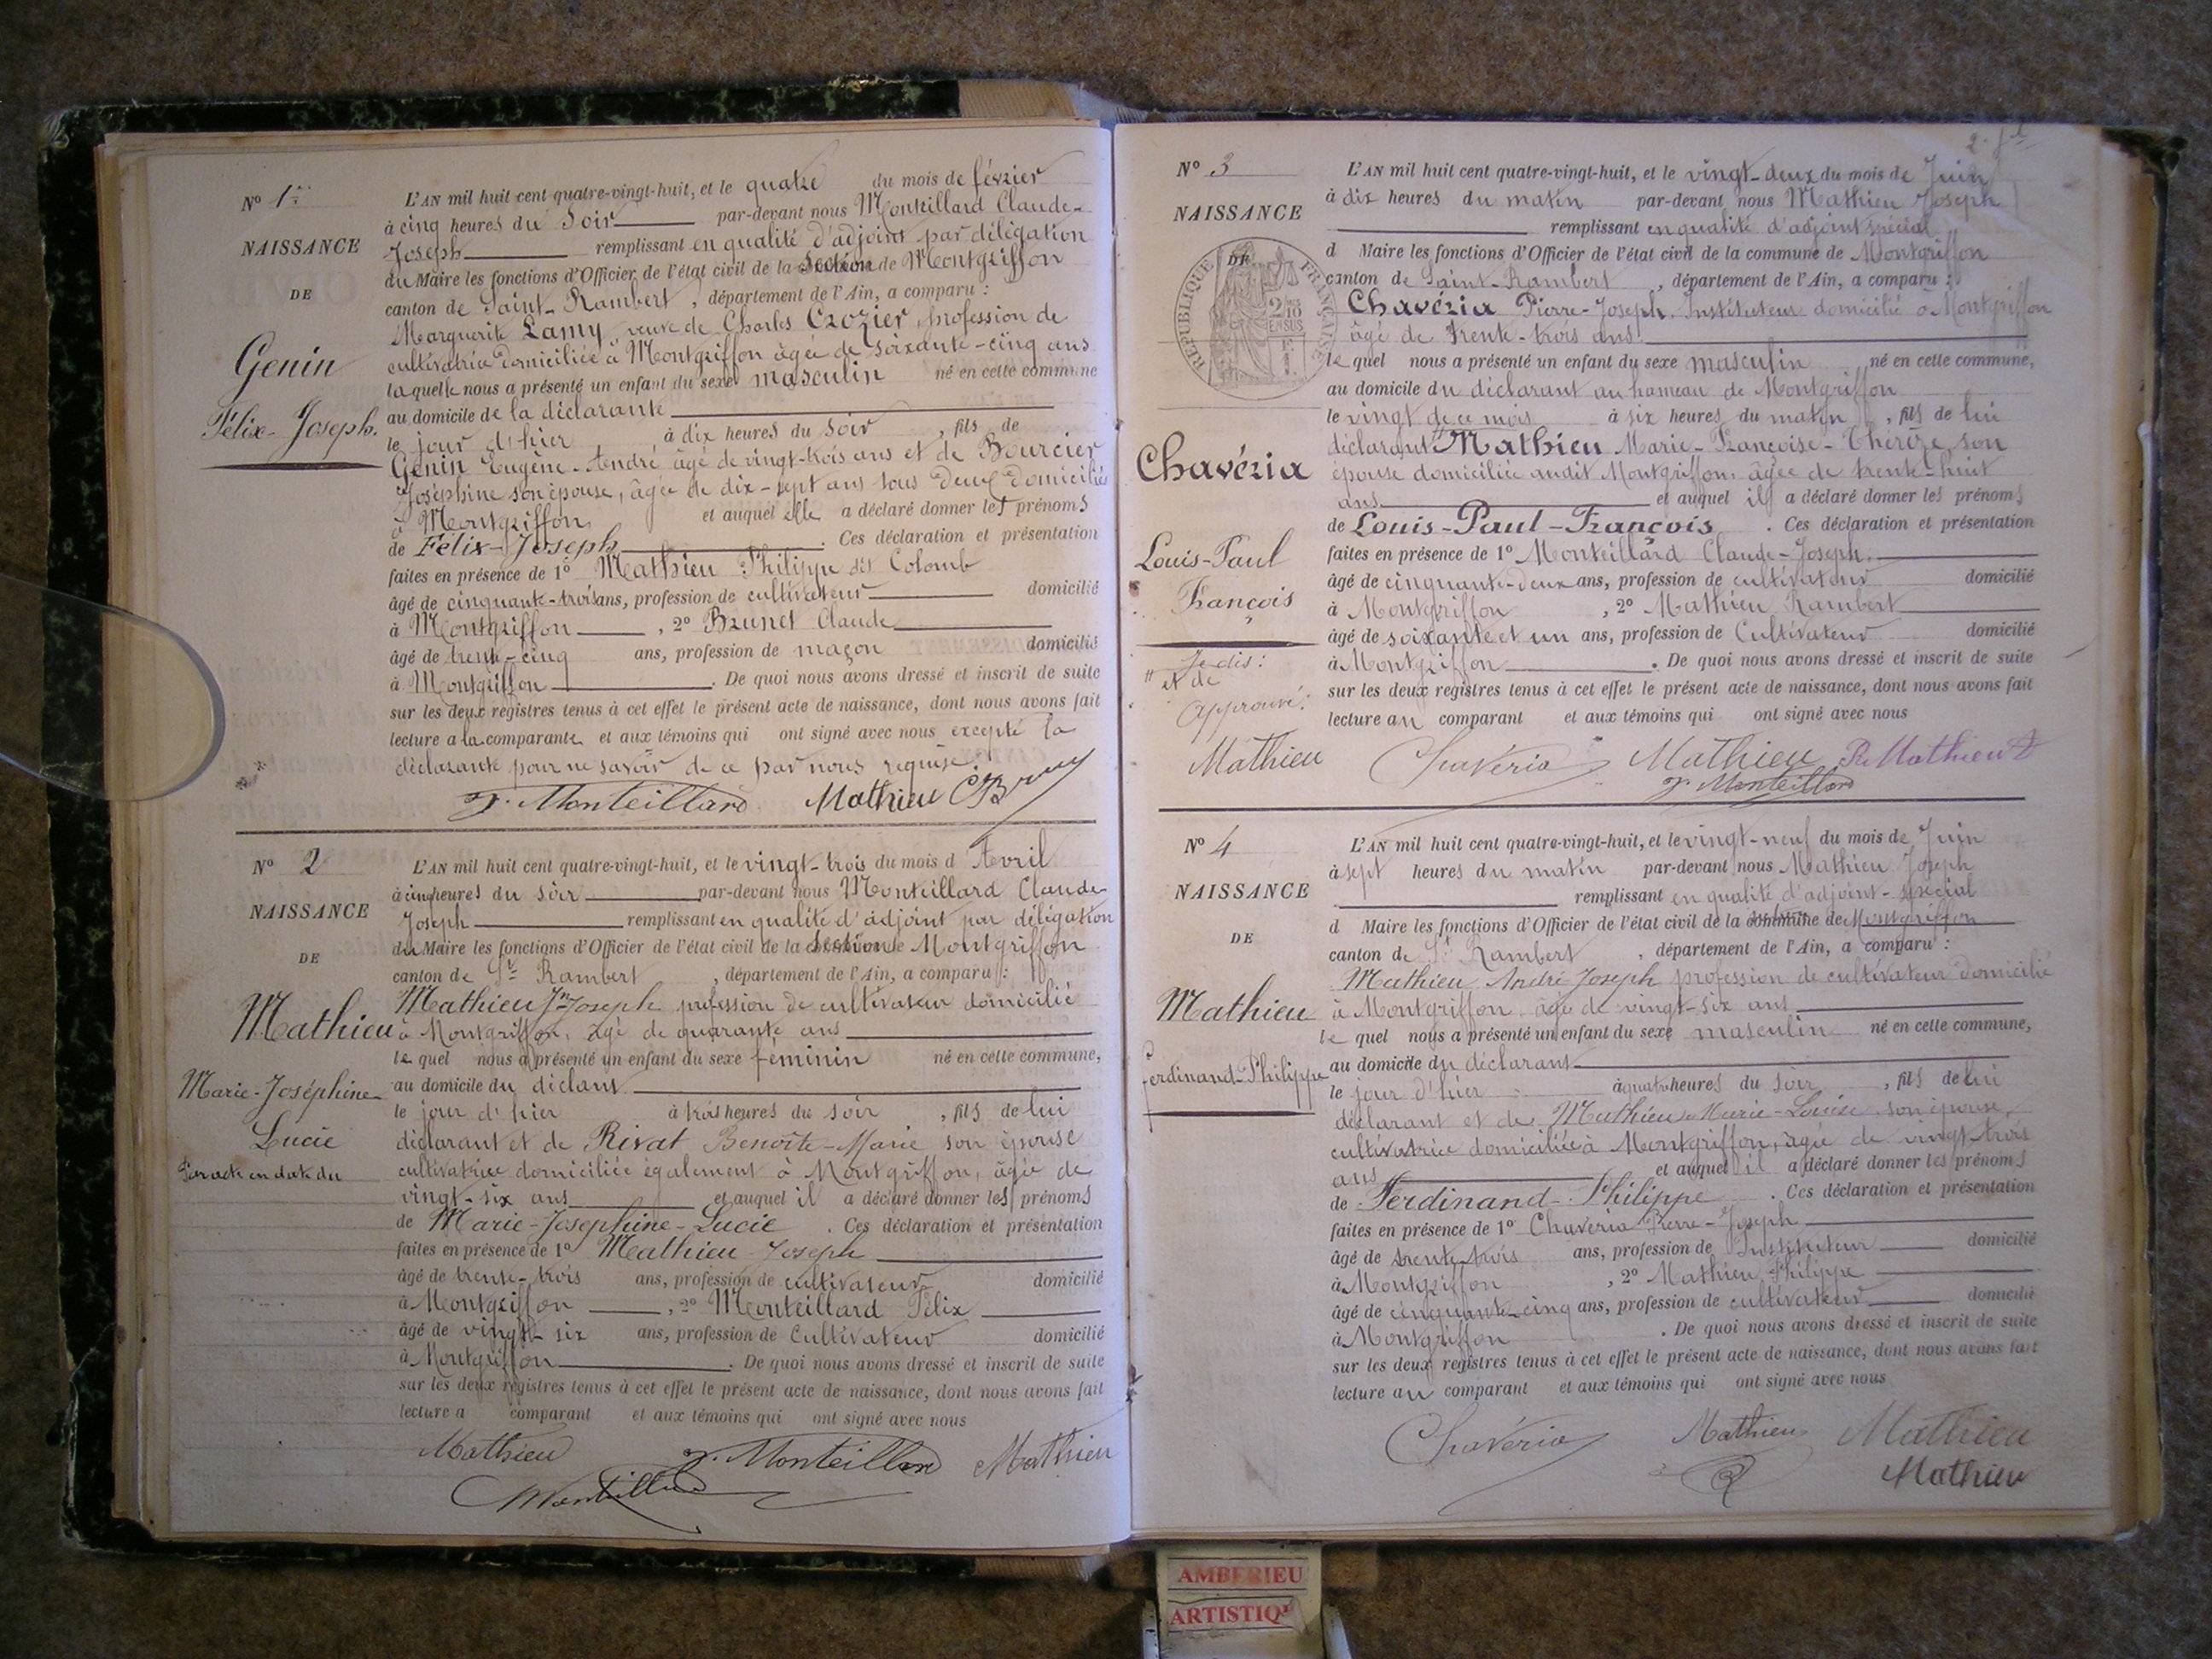 N° 1er
NAISSANCE
DE
Genin
Félix-Joseph.
L'AN mil huit cent quatre-vingt-huit, et le quatre du mois de février
à cinq heures du Soir par-devant nous Monteillard Claude-
Joseph remplissant en qualité d'adjoint par délégation
du Maire les fonctions d'Officier de l'état civil de la Section de Montgriffon
canton de Saint-Rambert, département de l'Ain, a comparu :
Marguerite Lamy, veuve de Charles Crozier, profession de
cultivatrice domiciliée à Montgriffon âgée de soixante-cinq ans
laquelle nous a présenté un enfant du sexe masculin né en cette commune
au domicile de la déclarante
le jour d'hier, à dix heures du Soir, fils de
Genin Eugène-André âgé de vingt-trois ans et de Bourcier
Joséphine son épouse, âgée de dix-sept ans tous deux domiciliés
à Montgriffon et auquel elle a déclaré donner les prénoms
de Félix-Joseph. Ces déclaration et présentation
faites en présence de 1° Mathieu Philippe dit Colomb
âgé de cinquante-trois ans, profession de cultivateur domicilié
à Montgriffon, 2° Brunet Claude
âgé de trente-cinq ans, profession de maçon domicilié
à Montgriffon. De quoi nous avons dressé et inscrit de suite
sur les deux registres tenus à cet effet le présent acte de naissance, dont nous avons fait
lecture a la comparante et aux témoins qui ont signé avec nous excepté la
déclarante pour ne savoir de ce par nous requise.
J. Monteillard Mathieu
N° 2
NAISSANCE
DE
Mathieu
Marie-Joséphine-
Lucie
Par acte en date du
L'AN mil huit cent quatre-vingt-huit, et le vingt-trois du mois d Avril
à cinq heures du soir par-devant nous Monteillard Claude-
Joseph remplissant en qualité d'adjoint par délégation
du Maire les fonctions d'Officier de l'état civil de la Section de Montgriffon
canton de St Rambert, département de l'Ain, a comparu :
Mathieu Jn Joseph profession de cultivateur domicilié
à Montgriffon, âgé de quarante ans
le quel nous a présenté un enfant du sexe féminin né en cette commune,
au domicile du déclant
le jour d'hier à trois heures du soir, fils de lui
déclarant et de Rivat Benoîte-Marie son épouse
cultivatrice domiciliée également à Montgriffon, âgée de
vingt-six ans et auquel il a déclaré donner les prénoms
de Marie-Josephine-Lucie. Ces déclaration et présentation
faites en présence de 1° Mathieu Joseph
âgé de trente-trois ans, profession de cultivateur domicilié
à Montgriffon, 2° Monteillard Félix
âgé de vingt-six ans, profession de Cultivateur domicilié
à Montgriffon. De quoi nous avons dressé et inscrit de suite
sur les deux registres tenus à cet effet le présent acte de naissance, dont nous avons fait
lecture a comparant et aux témoins qui ont signé avec nous
Mathieu J. Monteillard Mathieu
Monteillard
N° 3
NAISSANCE
DE
RÉPUBLIQUE FRANÇAISE
Chavéria
Louis-Paul
François
Je dis:
" et de
Approuvé.
L'AN mil huit cent quatre-vingt-huit, et le vingt-deux du mois de Juin
à dix heures du matin par-devant nous Mathieu Joseph
remplissant en qualité d'adjoint spécial
d Maire les fonctions d'Officier de l'état civil de la commune de Montgriffon
canton de Saint-Rambert, département de l'Ain, a comparu :
Chavéria Pierre-Joseph, Instituteur domicilié à Montgriffon
âgé de trente-trois ans.
le quel nous a présenté un enfant du sexe masculin né en cette commune,
au domicile du déclarant au hameau de Montgriffon
le vingt de ce mois à six heures du matin, fils de lui
déclarant " Mathieu Marie-Françoise-Thérèze son
épouse domiciliée audit Montgriffon, âgée de trente-huit
ans et auquel il a déclaré donner les prénoms
de Louis-Paul-François. Ces déclaration et présentation
faites en présence de 1° Monteillard Claude-Joseph.
âgé de cinquante-deux ans, profession de cultivateur domicilié
à Montgriffon, 2° Mathieu Rambert
âgé de soixante et un ans, profession de Cultivateur domicilié
à Montgriffon. De quoi nous avons dressé et inscrit de suite
sur les deux registres tenus à cet effet le présent acte de naissance, dont nous avons fait
lecture au comparant et aux témoins qui ont signé avec nous
Mathieu Chavéria Mathieu R. Mathieu
J. Monteillard
N° 4
NAISSANCE
DE
Mathieu
Ferdinand-Philippe
L'AN mil huit cent quatre-vingt-huit, et le vingt-neuf du mois de Juin
à sept heures du matin par-devant nous Mathieu Joseph
remplissant en qualité d'adjoint-spécial
d Maire les fonctions d'Officier de l'état civil de la commune de Montgriffon
canton de St Rambert, département de l'Ain, a comparu :
Mathieu André Joseph profession de cultivateur domicilié
à Montgriffon âgé de vingt-six ans
le quel nous a présenté un enfant du sexe masculin né en cette commune,
au domicile du déclarant
le jour d'hier à quatre heures du soir, fils de lui
déclarant et de Mathieu Marie-Louise son épouse,
cultivatrice domiciliée à Montgriffon, âgée de vingt-trois
ans et auquel il a déclaré donner les prénoms
de Ferdinand-Philippe. Ces déclaration et présentation
faites en présence de 1° Chavéria Pierre-Joseph
âgé de trente-trois ans, profession de Instituteur domicilié
à Montgriffon, 2° Mathieu Philippe
âgé de cinquante-cinq ans, profession de cultivateur domicilié
à Montgriffon. De quoi nous avons dressé et inscrit de suite
sur les deux registres tenus à cet effet le présent acte de naissance, dont nous avons fait
lecture au comparant et aux témoins qui ont signé avec nous
Chavéria Mathieu Mathieu
Mathieu
AMBERIEU
ARTISTIQ